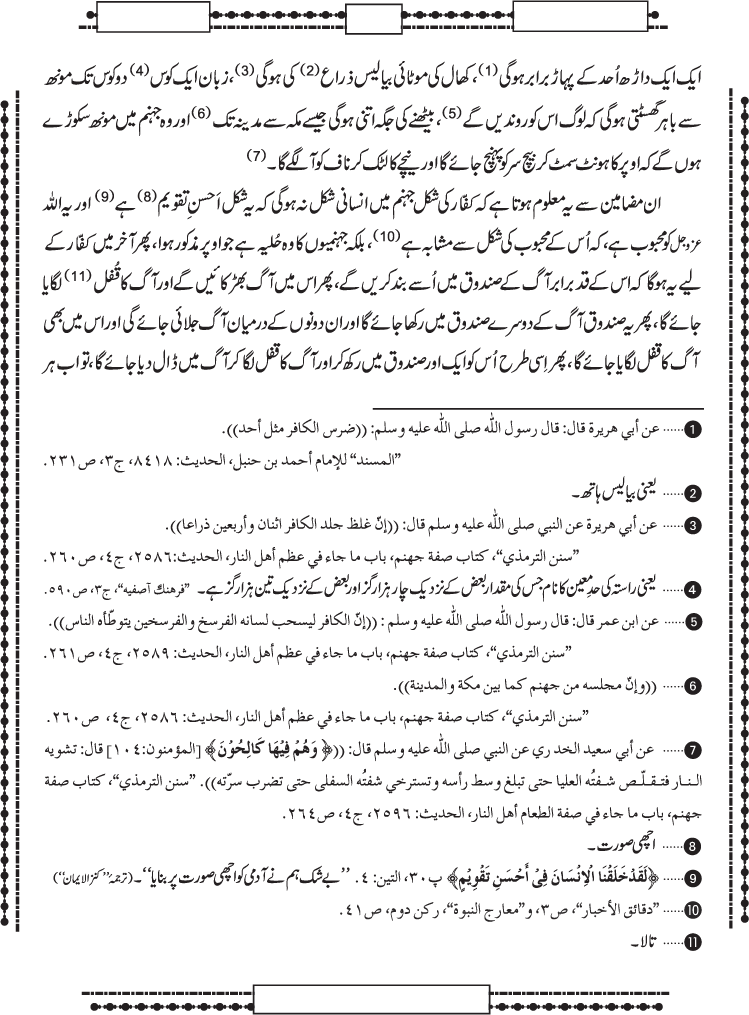 ایک ایک داڑھ اُحد کے پہاڑ برابر ہوگی (1)، کھال کی موٹائی بیالیس ذراع (2) کی ہوگی (3)، زبان ایک کوس (4) دو کوس تک مونھ
سے باہر گھسٹتی ہوگی کہ لوگ اس کو روندیں گے (5)، بیٹھنے کی جگہ اتنی ہوگی جیسے مکہ سے مدینہ تک (6) اور وہ جہنم میں مونھ سکوڑے
ہوں گے کہ اوپر کا ہونٹ سمٹ کر بیچ سر کو پہنچ جائے گا اور نیچے کا لٹک کر ناف کو آ لگے گا۔ (7)
ان مضامین سے یہ معلوم ہوتا ہے کہ کفّار کی شکل جہنم میں انسانی شکل نہ ہوگی کہ یہ شکل اَحسنِ تقویم (8) ہے (9) اور یہ اللہ
عزوجل کو محبوب ہے، کہ اُس کے محبوب کی شکل سے مشابہ ہے (10)، بلکہ جہنمیوں کا وہ حُلیہ ہے جو اوپر مذکور ہوا، پھر آخر میں کفّار کے
لیے یہ ہوگا کہ اس کے قد برابر آگ کے صندوق میں اُسے بند کریں گے، پھر اس میں آگ بھڑکائیں گے اور آگ کا قُفل (11) لگایا
جائے گا، پھر یہ صندوق آگ کے دوسرے صندوق میں رکھا جائے گا اور ان دونوں کے درمیان آگ جلائی جائے گی اور اس میں بھی
آگ کا قفل لگایا جائے گا، پھر اِسی طرح اُس کو ایک اور صندوق میں رکھ کر اور آگ کا قفل لگا کر آگ میں ڈال دیا جائے گا، تو اب ہر
1 ...... عن أبي هريرة قال: قال رسول اللّٰه صلى اللّٰه عليه وسلم: ((ضرس الكافر مثل أحد)).
”المسند“ للإمام أحمد بن حنبل، الحديث: ٨٤١٨، ج٣، ص٢٣١.
2 ...... یعنی بیالیس ہاتھ۔
3 ...... عن أبي هريرة عن النبي صلى اللّٰه عليه وسلم قال: ((إنّ غلظ جلد الكافر اثنان وأربعين ذراعا)).
”سنن الترمذي“، كتاب صفة جهنم، باب ما جاء في عظم أهل النار، الحديث:٢٥٨٦، ج٤، ص٢٦٠.
4 ...... یعنی راستہ کی حدِ معین کا نام جس کی مقدار بعض کے نزدیک چار ہزار گز اور بعض کے نزدیک تین ہزار گز ہے۔ ”فرهنگ آصفيه“، ج٣، ص٥٩٠.
5 ...... عن ابن عمر قال: قال رسول اللّٰه صلى اللّٰه عليه وسلم : ((إنّ الكافر ليسحب لسانه الفرسخ والفرسخين يتوطّأه الناس)).
”سنن الترمذي“، كتاب صفة جهنم، باب ما جاء في عظم أهل النار، الحديث: ٢٥٨٩، ج٤، ص٢٦١.
6 ...... ((وإنّ مجلسه من جهنم كما بين مكة والمدينة)).
”سنن الترمذي“، كتاب صفة جهنم، باب ما جاء في عظم أهل النار، الحديث: ٢٥٨٦، ج٤، ص٢٦٠.
7 ...... عن أبي سعيد الخدري عن النبي صلى اللّٰه عليه وسلم قال: ((﴿ وَهُمْ فِيْهَا كَالِحُوْنَ﴾ [المؤمنون:١٠٤] قال: تشويه
النـار فتـقـلّـص شـفـتُه العليا حتى تبلغ وسط رأسه وتسترخي شفتُه السفلى حتى تضرب سرّته)). ”سنن الترمذي“، كتاب صفة
جهنم، باب ما جاء في صفة الطعام أهل النار، الحديث: ٢٥٩٦، ج٤، ص٢٦٤.
8 ...... اچھی صورت۔
9 ...... ﴿لَقَدْ خَلَقْنَا الْاِنْسَانَ فِيْ أَحْسَنِ تَقْوِيْمٍ﴾ پ٣٠، التين: ٤. ”بے شک ہم نے آدمی کو اچھی صورت پر بنایا“۔ (ترجمۂ ”کنز الایمان“)
10 ...... ”دقائق الأخبار“، ص٣، و”معارج النبوة“، ركن دوم، ص٤١.
11 ...... تالا۔